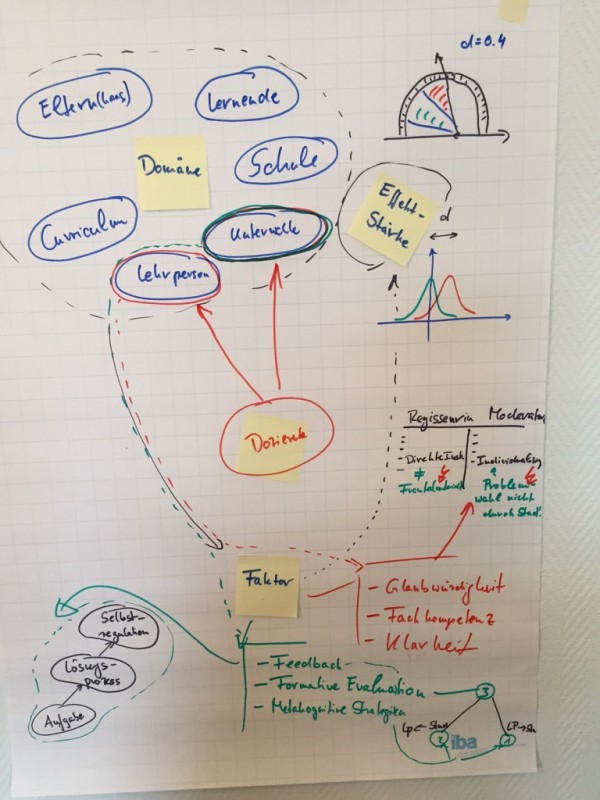 d=0.4
Eltern(haus)
Lernende
Domäne
Schule
Effekt-
Stärke
d
Curriculum
Lehrperson
Dozierende
Regisseurin Moderator
Direkte Instr.
Individualisierung
≠
Frontalunterricht
Problem-
wahl nicht
durch Stud.
Faktor
- Glaubwürdigkeit
- Fachkompetenz
- Klarheit
Selbst-
regulation
Lösungs-
prozess
Aufgabe
- Feedback
- Formative Evaluation
- Metakognitive Strategien
3
Lp ← Stud
LP →
2
1
iba